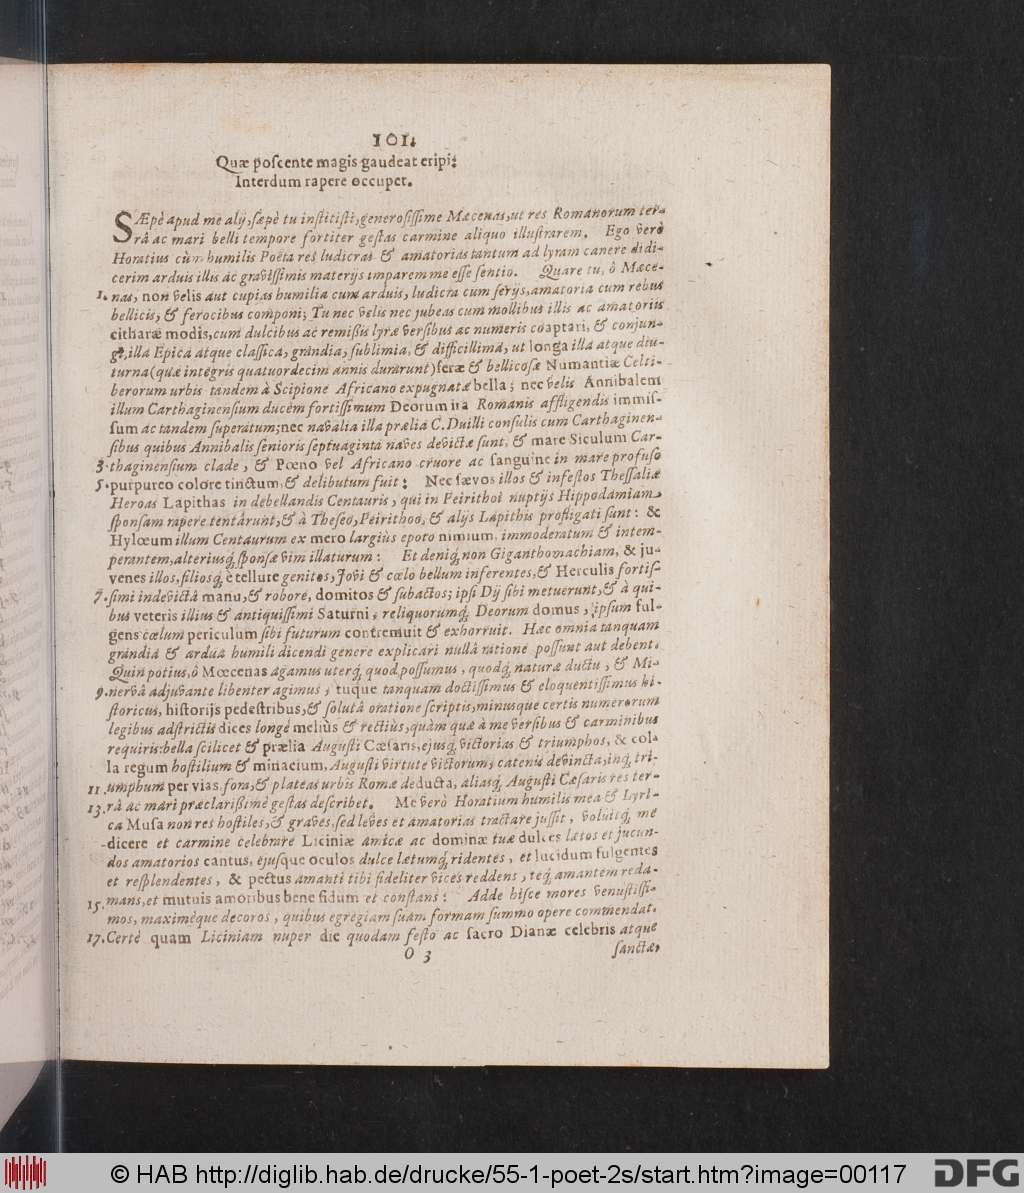 101.
Quæ poſcente magis gaudeat eripi:
Interdum rapere occupet.
SÆpè apud me alij, ſæpè tu inſtitiſti, generoſiſſime Mæcenas, ut res Romanorum ter-
râ ac mari belli tempore fortiter geſtas carmine aliquo illuſtrarem. Ego verò
Horatius cùm humilis Poëta res ludicras & amatorias tantum ad lyram canere didi-
cerim arduis illis ac graviſſimis materijs imparem me eſſe ſentio. Quare tu, ô Mæce-
1. nas, non velis aut cupias humilia cum arduis, ludicra cum ſerijs, amatoria cum rebus
bellicis, & ferocibus componi; Tu nec velis nec jubeas cum mollibus illis ac amatoriis
citharæ modis, cum dulcibus ac remiſſis lyræ verſibus ac numeris coaptari, & conjun-
gi, illa Epica atque claſſica, grandia, ſublimia, & difficillima, ut longa illa atque diu-
turna (quæ integris quatuordecim annis durarunt) feræ & bellicoſæ Numantiæ Celti-
berorum urbis tandem à Scipione Africano expugnatæ bella; nec velis Annibalem
illum Carthaginenſium ducem fortiſſimum Deorum ira Romanis affligendis immiſ-
ſum ac tandem ſuperatum; nec navalia illa prælia C. Duilli conſulis cum Carthaginen-
ſibus quibus Annibalis ſenioris ſeptuaginta naves devictæ ſunt, & mare Siculum Car-
3. thaginenſium clade, & Pœno vel Africano cruore ac ſanguine in mare profuſo
5. purpureo colore tinctum, & delibutum fuit: Nec ſævos illos & infeſtos Theſſaliæ
Heroas Lapithas in debellandis Centauris, qui in Peirithoi nuptijs Hippodamiam
ſponſam rapere tentârunt, & à Theſeo, Peirithoo, & alijs Lapithis profligati ſunt: &
Hylœum illum Centaurum ex mero largius epoto nimium, immoderatum & intem-
perantem, alteriusq́; ſponſæ vim illaturum: Et deniq́; non Giganthomachiam, & ju-
venes illos, filiosq́; è tellure genitos, Jovi & cœlo bellum inferentes, & Herculis fortiſ-
7. ſimi indevictâ manu, & robore, domitos & ſubactos; ipſi Dij ſibi metuerunt, & à qui-
bus veteris illius & antiquiſſimi Saturni, reliquorumq́; Deorum domus, ipſum ful-
gens cœlum periculum ſibi futurum contremuit & exhorruit. Hæc omnia tanquam
grandia & ardua humili dicendi genere explicari nullâ ratione poſſunt aut debent.
Quin potius, ô Mœcenas agamus uterq́; quod poſſumus, quodq́; naturæ ductu, & Mi-
9. nervâ adjuvante libenter agimus, tuque tanquam doctiſſimus & eloquentiſſimus hi-
ſtoricus, hiſtorijs pedeſtribus, & ſolutâ oratione ſcriptis, minusque certis numerorum
legibus adſtrictis dices longè meliùs & rectiùs, quàm quæ à me verſibus & carminibus
requiris: bella ſcilicet & prælia Auguſti Cæſaris, ejusq́; victorias & triumphos, & col-
la regum hoſtilium & minacium, Auguſti virtute victorum, catenis devincta, inq́; tri-
11. umphum per vias, fora, & plateas urbis Romæ deducta, aliasq́; Auguſti Cæſaris res ter-
13. râ ac mari præclariſſimè geſtas deſcribet. Me verò Horatium humilis mea & Lyri-
ca Muſa non res hoſtiles, & graves, ſed leves et amatorias tractare juſſit, voluitq́; me
dicere et carmine celebrare Liciniæ amicæ ac dominæ tuæ dulces lætos et jucun-
dos amatorios cantus, ejusque oculos dulce lætumq́; ridentes, et lucidum fulgentes
et reſplendentes, & pectus amanti tibi fideliter vices reddens, teq́; amantem reda-
15. mans, et mutuis amoribus bene fidum et conſtans: Adde hiſce mores venuſtiſſi-
mos, maximèque decoros, quibus egregiam ſuam formam ſummo opere commendat.
17. Certè quam Liciniam nuper die quodam feſto ac ſacro Dianæ celebris atque
O 3
ſanctæ,
© HAB http://diglib.hab.de/drucke/55-1-poet-2s/start.htm?image=00117
DFG